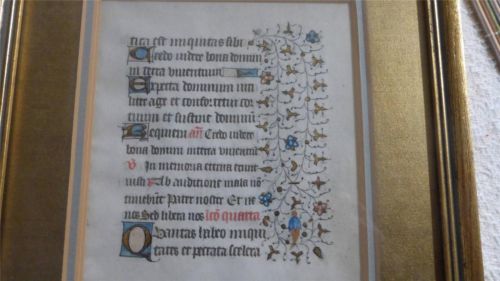 tita est iniquitas sibi
Credo videre bona domini
in terra viventium
Expecta dominum viri
liter age et confortetur cor
tuum et sustine dominū
Requiem añ Credo videre
bona domini in terra viventiū
V In memoria eterna erunt
iusti Ab auditione mala nō
timebunt Pater noster Et ne
nos Sed libera nos lcō quarta
Quantas habeo iniqui
tates et peccata scelera